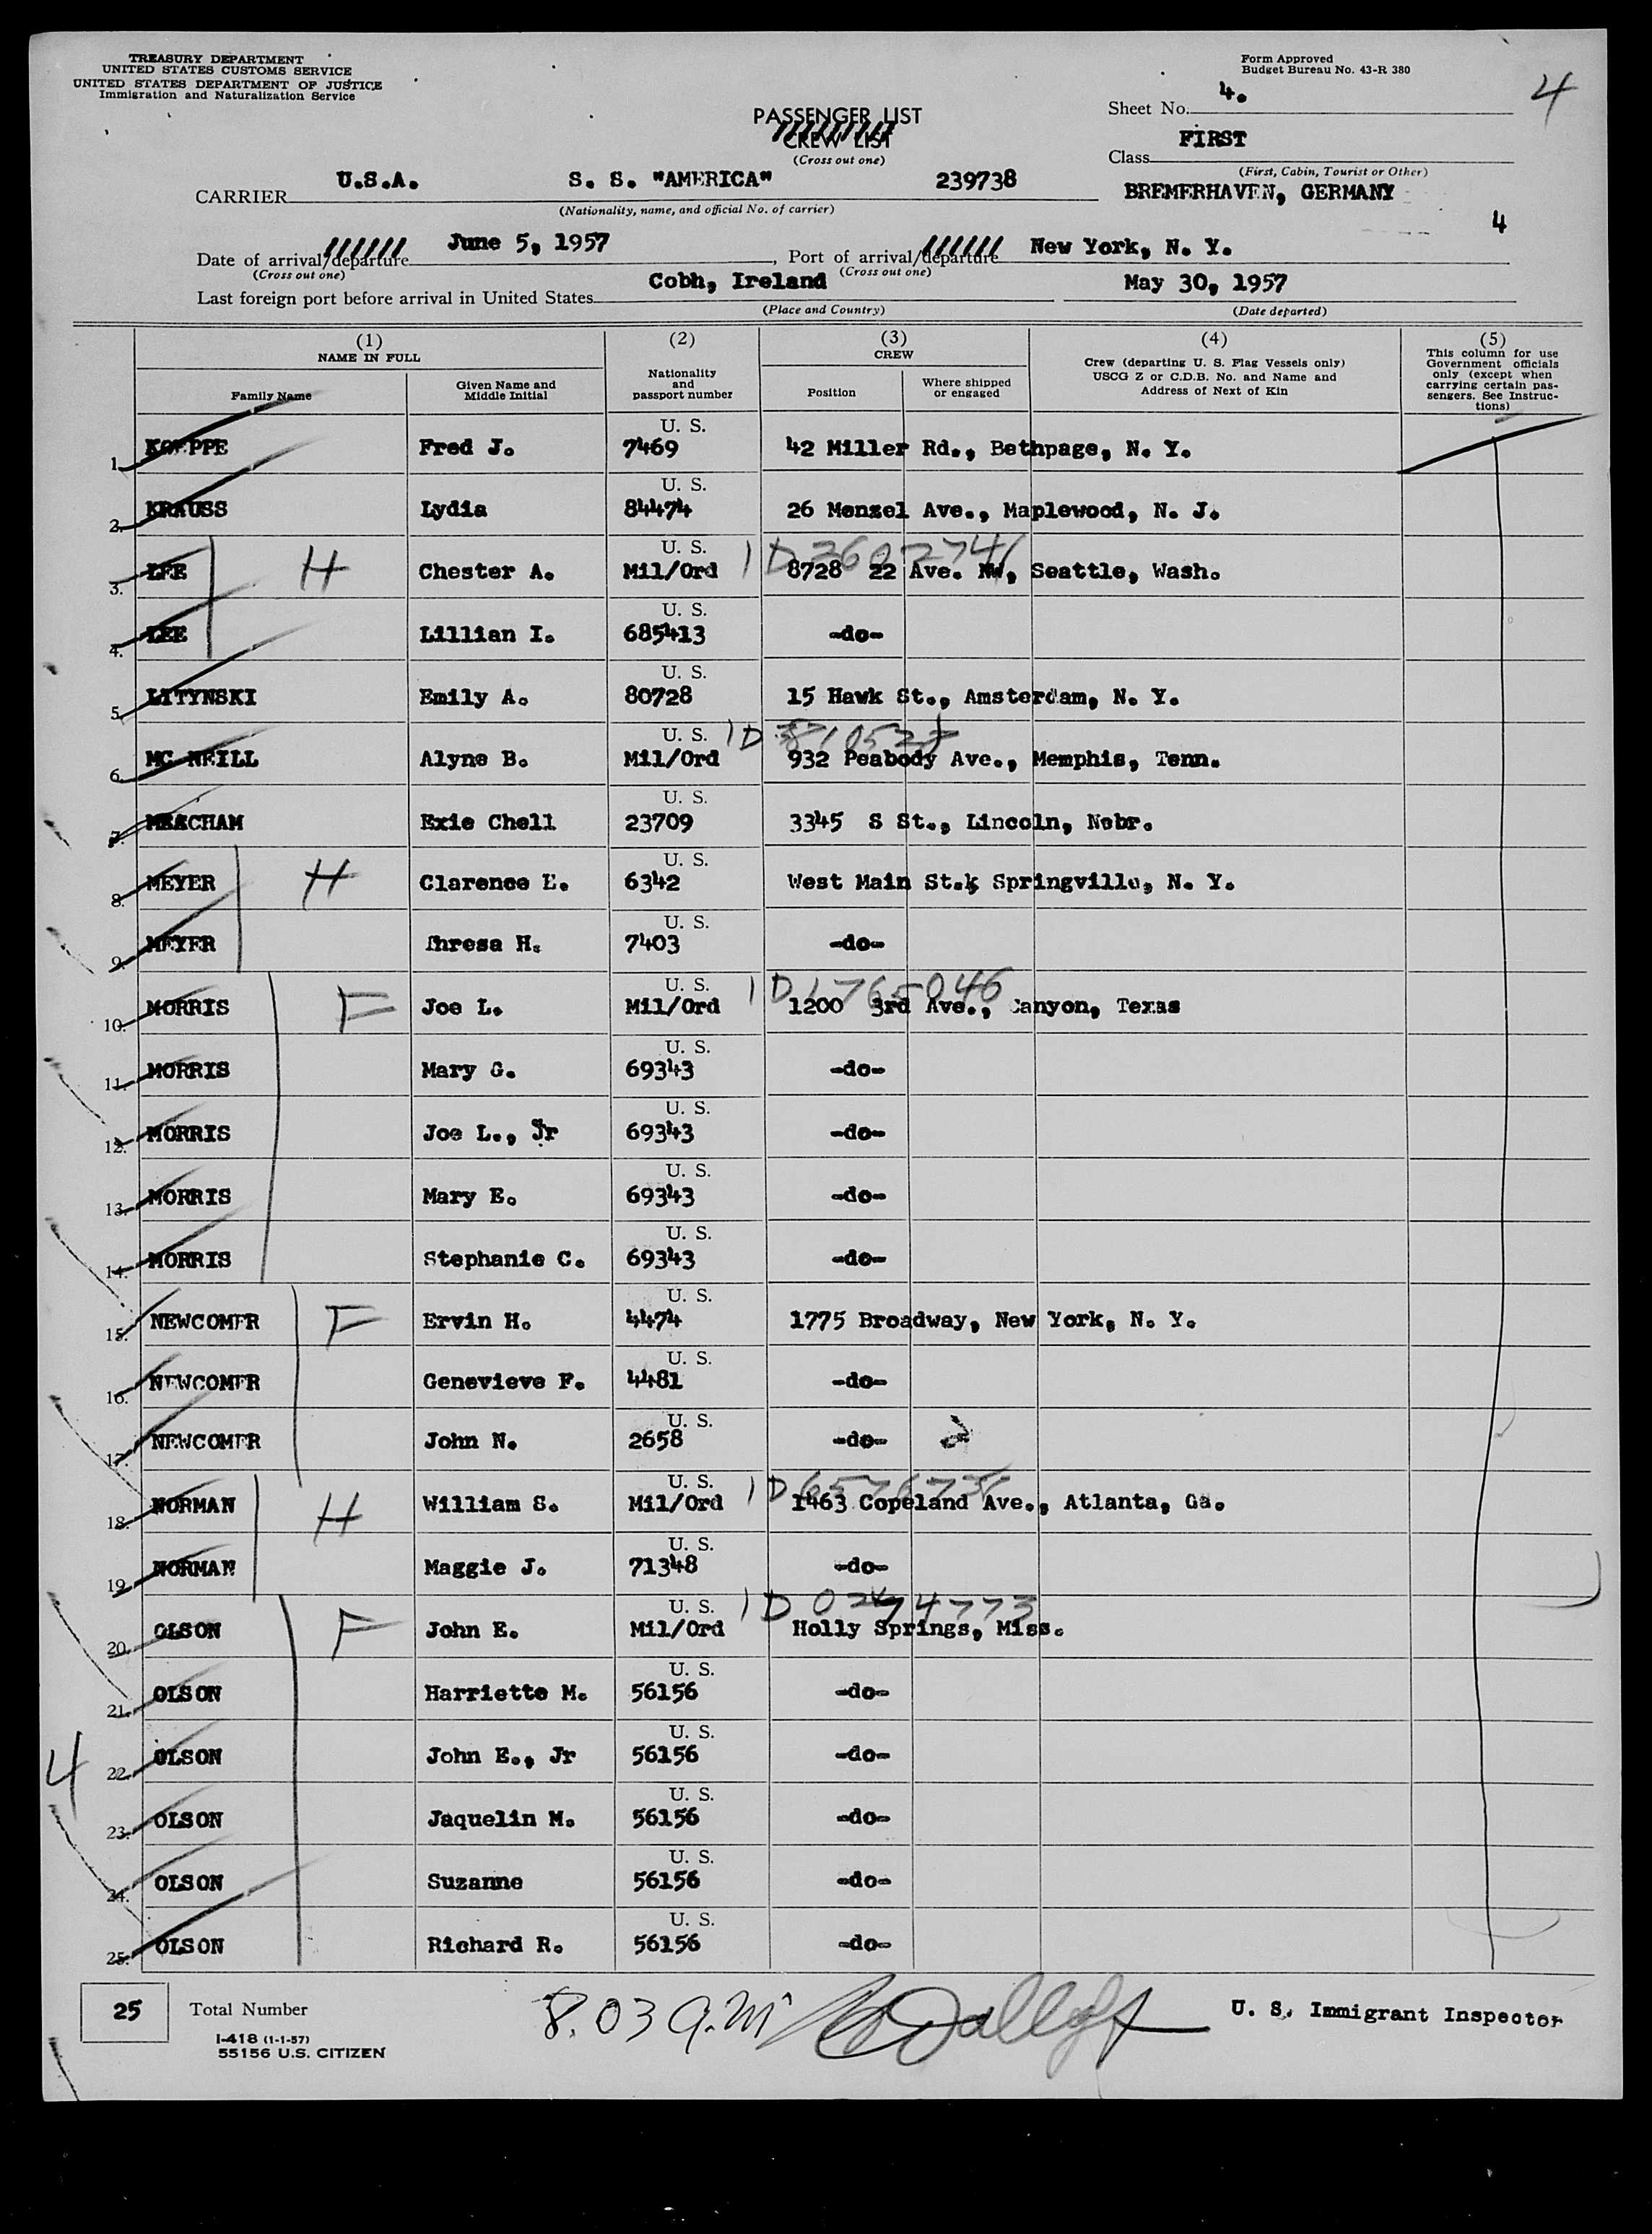 TREASURY DEPARTMENT
UNITED STATES CUSTOMS SERVICE
UNITED STATES DEPARTMENT OF JUSTICE
Immigration and Naturalization Service
Form Approved
Budget Bureau No. 43-R 380
4
PASSENGER LIST
CREW LIST
(Cross out one)
Sheet No. 4.
Class FIRST
(First, Cabin, Tourist or Other)
CARRIER U.S.A. S. S. "AMERICA" 239738
(Nationality, name, and official No. of carrier)
BREMERHAVEN, GERMANY
4
Date of arrival/departure June 5, 1957, Port of arrival/departure New York, N. Y.
(Cross out one) (Cross out one)
Last foreign port before arrival in United States Cobh, Ireland May 30, 1957
(Place and Country) (Date departed)
(1) NAME IN FULL
Family Name
Given Name and Middle Initial
(2) Nationality and passport number
(3) CREW
Position
Where shipped or engaged
(4) Crew (departing U. S. Flag Vessels only) USCG Z or C.D.B. No. and Name and Address of Next of Kin
(5) This column for use Government officials only (except when carrying certain passengers. See Instructions)
1. KOEPPE Fred J. U. S. 7469 42 Miller Rd., Bethpage, N. Y.
2. KRAUSS Lydia U. S. 84474 26 Menzel Ave., Maplewood, N. J.
3. LEE H Chester A. U. S. Mil/Ord 8728 22 Ave. NW, Seattle, Wash.
4. LEE Lillian I. U. S. 685413 -do-
5. LITYNSKI Emily A. U. S. 80728 15 Hawk St., Amsterdam, N. Y.
6. MC NEILL Alyne B. U. S. Mil/Ord 932 Peabody Ave., Memphis, Tenn.
7. MEACHAM Exie Chell U. S. 23709 3345 S St., Lincoln, Nebr.
8. MEYER H Clarence E. U. S. 6342 West Main St., Springville, N. Y.
9. MEYER Thresa H. U. S. 7403 -do-
10. MORRIS F Joe L. U. S. Mil/Ord ID 1765046 1200 3rd Ave., Canyon, Texas
11. MORRIS Mary G. U. S. 69343 -do-
12. MORRIS Joe L., Jr U. S. 69343 -do-
13. MORRIS Mary E. U. S. 69343 -do-
14. MORRIS Stephanie C. U. S. 69343 -do-
15. NEWCOMER F Ervin H. U. S. 4474 1775 Broadway, New York, N. Y.
16. NEWCOMER Genevieve F. U. S. 4481 -do-
17. NEWCOMER John N. U. S. 2658 -do-
18. NORMAN H William S. U. S. Mil/Ord 1463 Copeland Ave., Atlanta, Ga.
19. NORMAN Maggie J. U. S. 71348 -do-
20. OLSON F John E. U. S. Mil/Ord Holly Springs, Miss.
21. OLSON Harriette M. U. S. 56156 -do-
4
22. OLSON John E., Jr U. S. 56156 -do-
23. OLSON Jaquelin M. U. S. 56156 -do-
24. OLSON Suzanne U. S. 56156 -do-
25. OLSON Richard R. U. S. 56156 -do-
25 Total Number
I-418 (1-1-57)
55156 U.S. CITIZEN
8.03 a.m
U. S. Immigrant Inspector